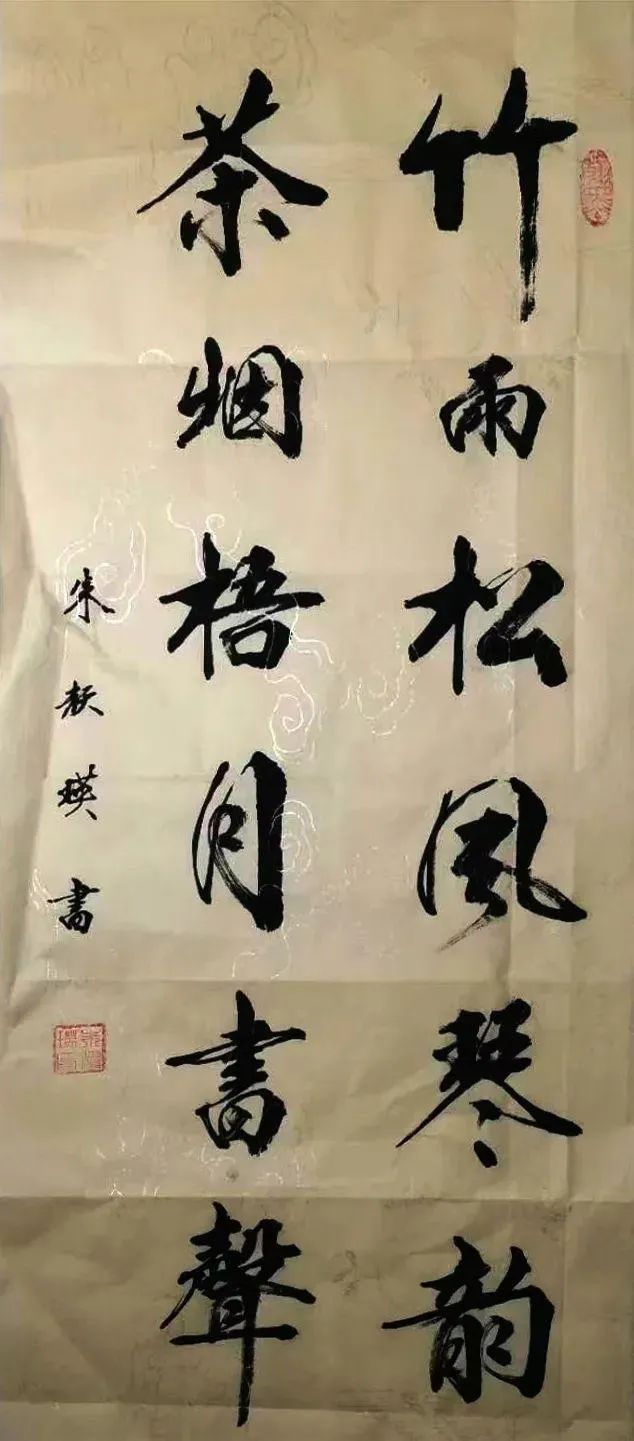 竹雨松風琴韻
茶烟梧月書聲
朱 瑛書